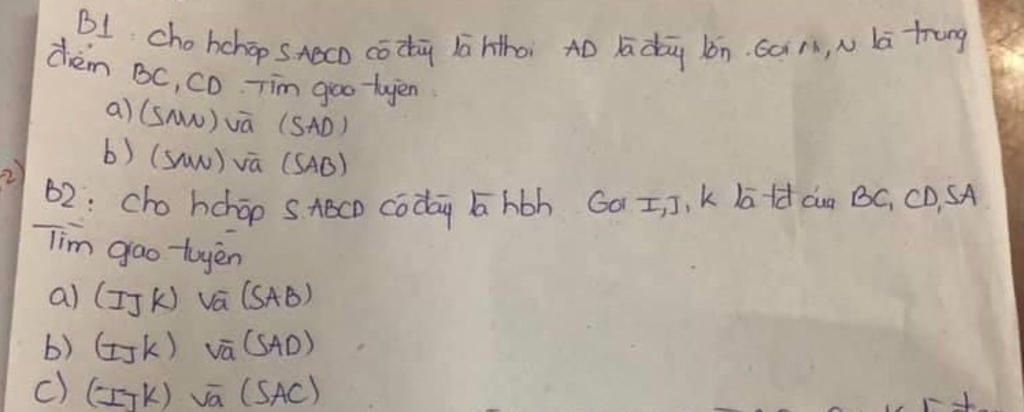 B1: Cho hchóp S.ABCD có đáy là hthoi AD là đáy lớn. Gọi M, N là trung
điểm BC, CD. Tìm giao tuyến.
a) (SMN) và (SAD)
b) (SMN) và (SAB)
2)
B2: Cho hchóp S.ABCD có đáy là hbh Gọi I, J, K là tđ của BC, CD, SA
Tìm giao tuyến
a) (IJK) và (SAB)
b) (IJK) và (SAD)
c) (IJK) và (SAC)